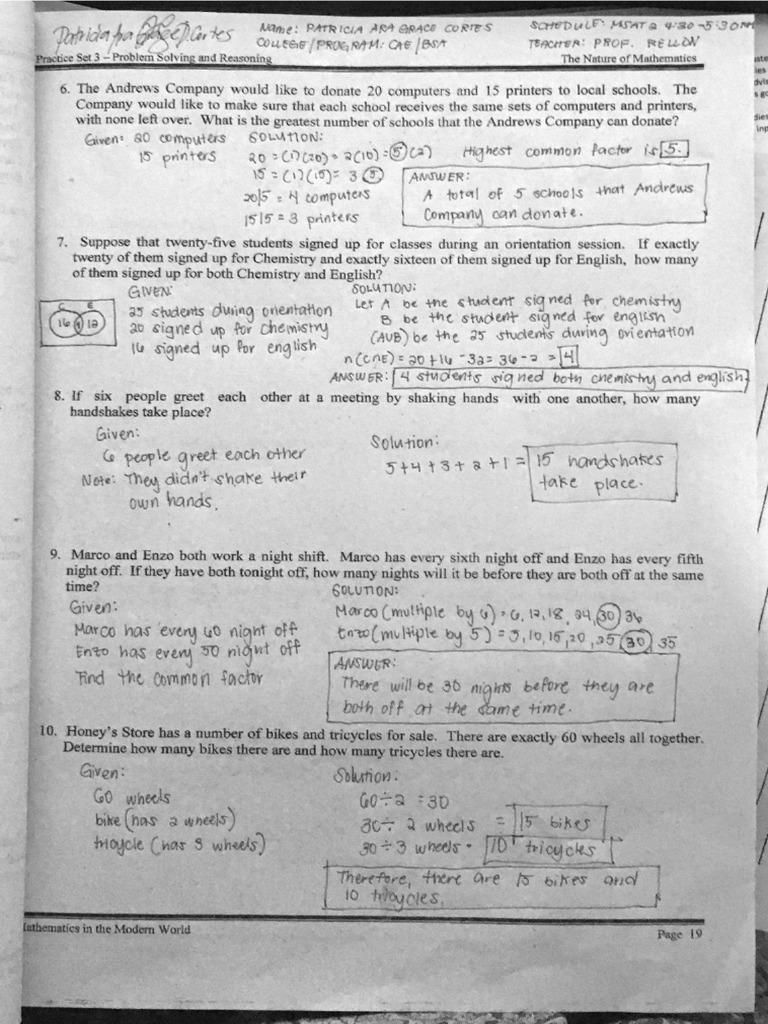 Name: PATRICIA ARA GRACE CORTES
SCHEDULE: MSAT 2 4:30-5:30PM
COLLEGE/PROGRAM: CAE/BSA
TEACHER: PROF. RELLON
Practice Set 3 – Problem Solving and Reasoning
The Nature of Mathematics
6. The Andrews Company would like to donate 20 computers and 15 printers to local schools. The
Company would like to make sure that each school receives the same sets of computers and printers,
with none left over. What is the greatest number of schools that the Andrews Company can donate?
Given: 20 computers
15 printers
SOLUTION:
20 = (1)(20) = 2(10) = (5)(2)
15 = (1)(15) = 3 (5)
20/5 = 4 computers
15/5 = 3 printers
Highest common factor is 5.
ANSWER:
A total of 5 schools that Andrews
Company can donate.
7. Suppose that twenty-five students signed up for classes during an orientation session. If exactly
twenty of them signed up for Chemistry and exactly sixteen of them signed up for English, how many
of them signed up for both Chemistry and English?
C E
16 4 12
GIVEN:
25 students during orientation
20 signed up for chemistry
16 signed up for english
SOLUTION:
Let A be the student signed for chemistry
B be the student signed for english
(AUB) be the 25 students during orientation
n(C∩E) = 20 + 16 - 32 = 36 - 2 = 4
ANSWER: 4 students signed both chemistry and english
8. If six people greet each other at a meeting by shaking hands with one another, how many
handshakes take place?
Given:
6 people greet each other
Note: They didn't shake their
own hands.
Solution:
5+4+3+2+1 = 15 handshakes
take place.
9. Marco and Enzo both work a night shift. Marco has every sixth night off and Enzo has every fifth
night off. If they have both tonight off, how many nights will it be before they are both off at the same
time?
Given:
Marco has every 60 night off
Enzo has every 50 night off
Find the common factor
SOLUTION:
Marco (multiple by 6) = 6, 12, 18, 24, 30 36
Enzo (multiple by 5) = 5, 10, 15, 20, 25 30 35
ANSWER:
There will be 30 nights before they are
both off at the same time.
10. Honey's Store has a number of bikes and tricycles for sale. There are exactly 60 wheels all together.
Determine how many bikes there are and how many tricycles there are.
Given:
60 wheels
bike (has 2 wheels)
tricycle (has 3 wheels)
Solution:
60 ÷ 2 = 30
30 ÷ 2 wheels = 15 bikes
30 ÷ 3 wheels = 10 tricycles
Therefore, there are 15 bikes and
10 tricycles.
Mathematics in the Modern World
Page 19